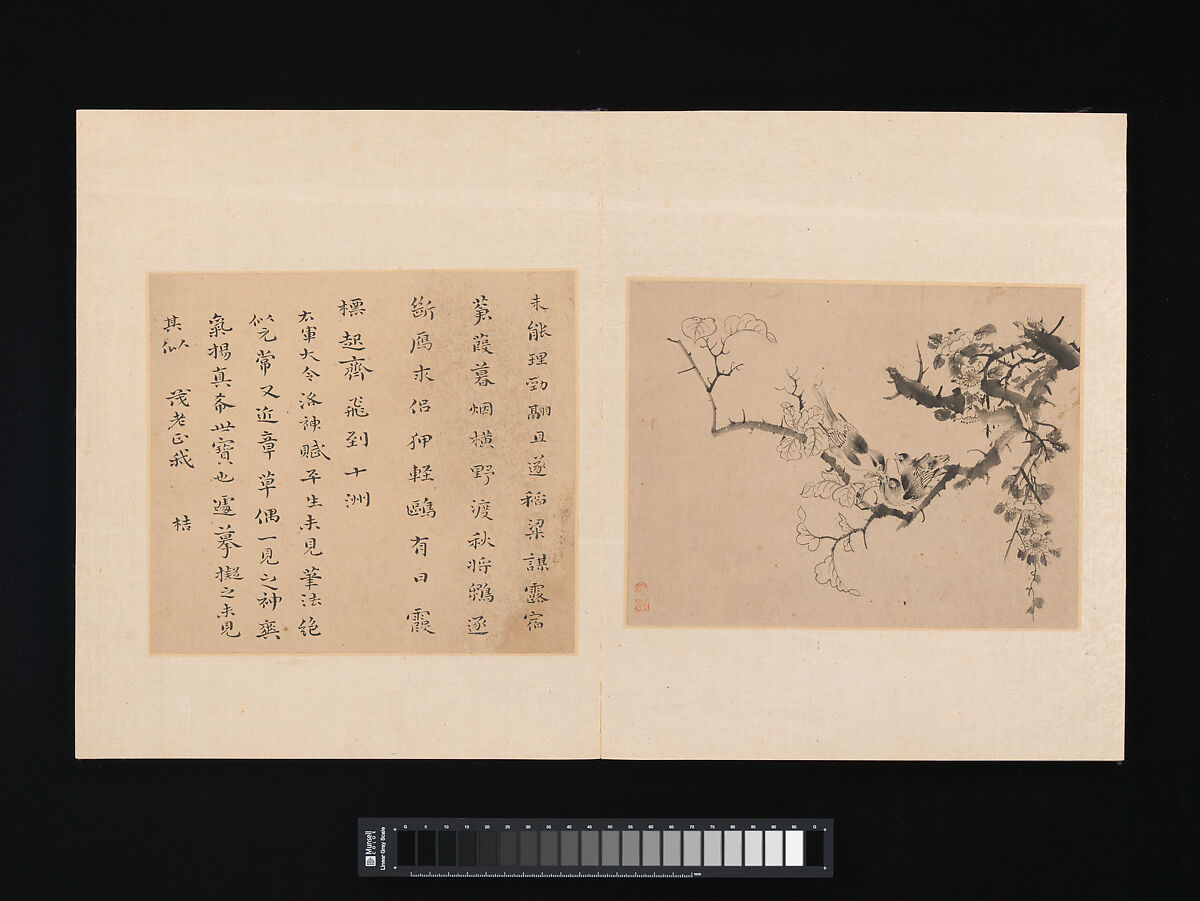 未能理勁翮且遂稻粱謀露宿
葦葭暮烟橫野渡秋将鵝逐
斷鴈求侶狎輕鷗有日霞
標起齊飛到十洲
右軍大令洛神賦平生未見筆法絕
似元常又近章草偶一見之神爽
氣揚真希世寶也遽摹擬之未見
其似
茂老正我
桔
Munsell
COLOR
Linear Gray Scale
G 5 10 15 20 25 30 35 40 45 50 55 60 65 70 75 80 85 90 95 G
mm